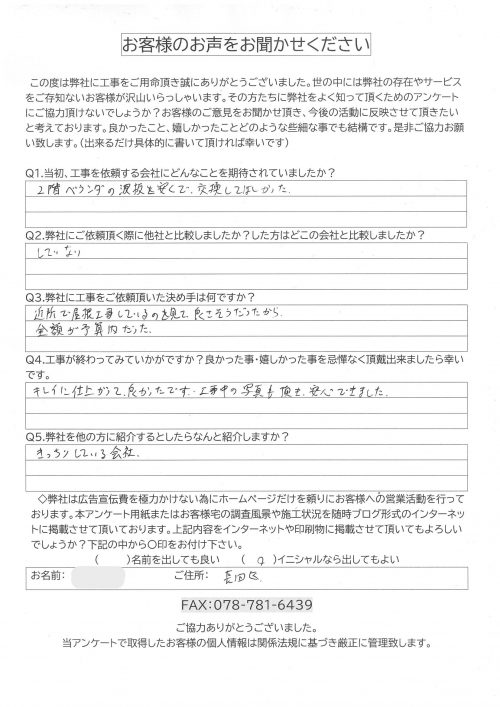 お客様のお声をお聞かせください
この度は弊社に工事をご用命頂き誠にありがとうございました。世の中には弊社の存在やサービス
をご存知ないお客様が沢山いらっしゃいます。その方たちに弊社をよく知って頂くためのアンケート
にご協力頂けないでしょうか?お客様のご意見をお聞かせ頂き、今後の活動に反映させて頂きたい
と考えております。良かったこと、嬉しかったことどのような些細な事でも結構です。是非ご協力お願
い致します。(出来るだけ具体的に書いて頂ければ幸いです)
Q1.当初、工事を依頼する会社にどんなことを期待されていましたか?
2階ベランダの波板を安くで、交換してほしかった.
Q2.弊社にご依頼頂く際に他社と比較しましたか?した方はどこの会社と比較しましたか?
していない
Q3.弊社に工事をご依頼頂いた決め手は何ですか?
近所で屋根工事しているのを見て良さそうだったから.
金額が予算内だった.
Q4.工事が終わってみていかがですか?良かった事・嬉しかった事を忌憚なく頂戴出来ましたら幸い
です。
キレイに仕上がって、良かったです. 工事中の写真も頂き、安心できました.
Q5.弊社を他の方に紹介するとしたらなんと紹介しますか?
きっちりしている会社.
◇弊社は広告宣伝費を極力かけない為にホームページだけを頼りにお客様への営業活動を行って
おります。本アンケート用紙またはお客様宅の調査風景や施工状況を随時ブログ形式のインターネッ
トに掲載させて頂いております。上記内容をインターネットや印刷物に掲載させて頂いてもよろしい
でしょうか?下記の中から〇印をお付け下さい。
( )名前を出しても良い ( ○ )イニシャルなら出してもよい
お名前: ご住所: 長田区
FAX:078-781-6439
ご協力ありがとうございました。
当アンケートで取得したお客様の個人情報は関係法規に基づき厳正に管理致します。